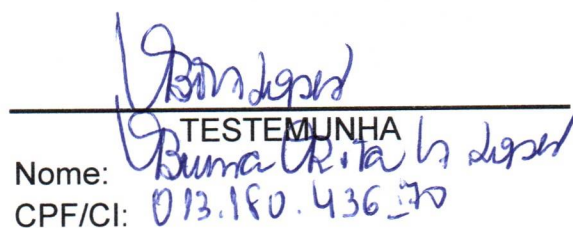 Lopes
TESTEMUNHA
Nome: Bruna Rita Lopes
CPF/CI: 013.180.436-70